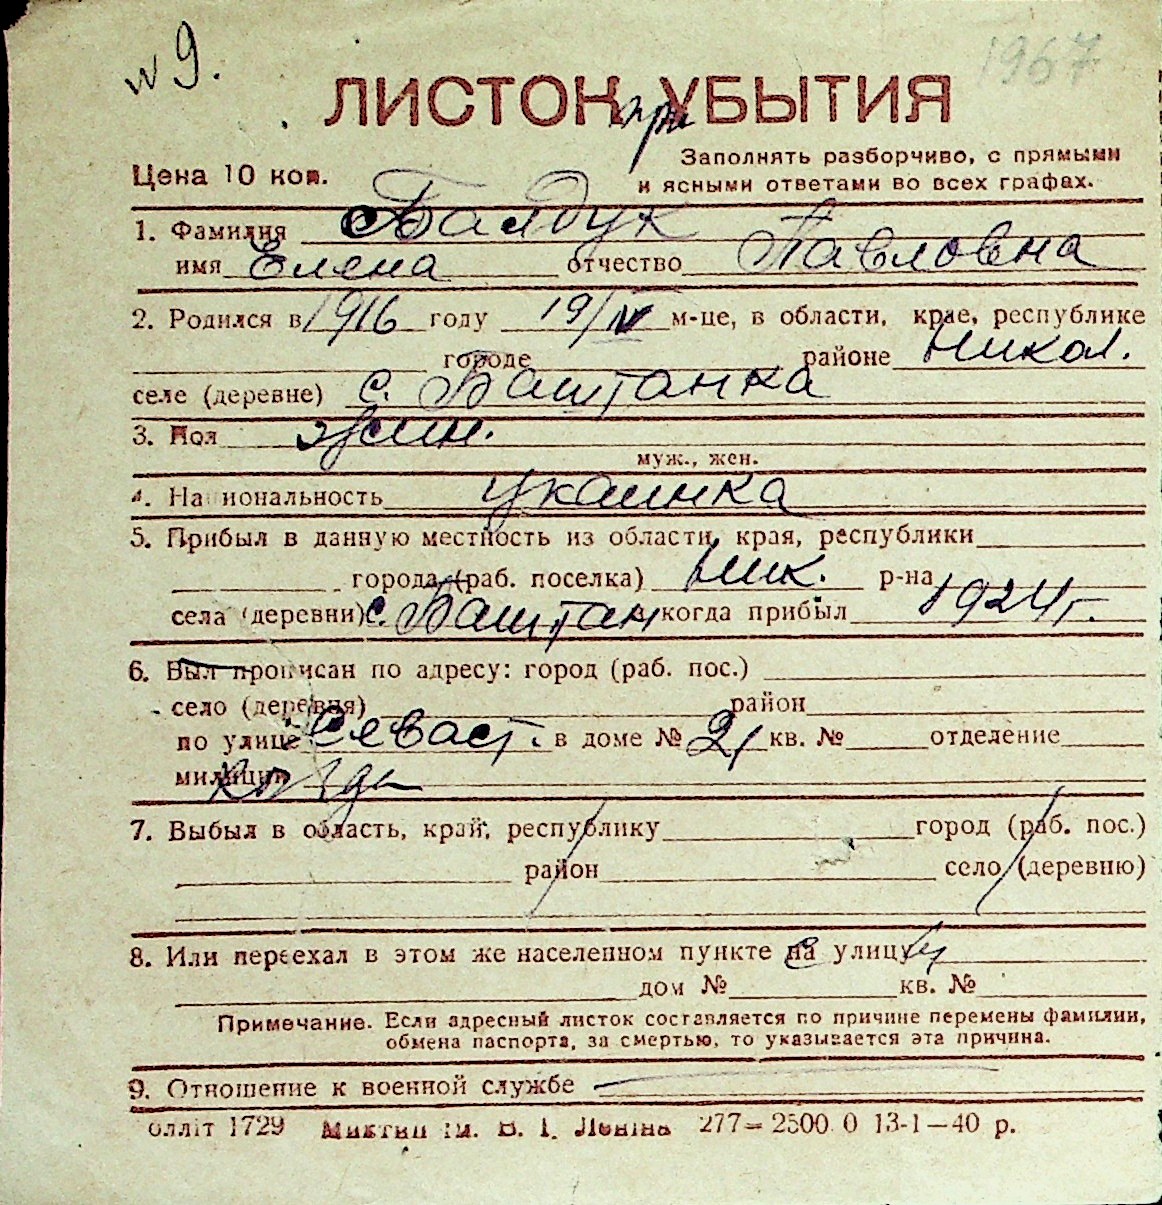 № 9.
1967
ЛИСТОК УБЫТИЯ
при
Заполнять разборчиво, с прямыми
Цена 10 коп.
и ясными ответами во всех графах.
1. Фамилия Балдук
имя Елена отчество Павловна
2. Родился в 1916 году 19/IV м-це, в области, крае, республике
городе районе Никол.
селе (деревне) с. Баштанка
3. Пол жин.
муж., жен.
4. Национальность украинка
5. Прибыл в данную местность из области, края, республики
города (раб. поселка) Ник. р-на
села (деревни) с. Баштан когда прибыл 1924 г.
6. Был прописан по адресу: город (раб. пос.)
село (деревня) район
по улице Севаст. в доме № 21 кв. № отделение
милиции
7. Выбыл в область, край, республику город (раб. пос.)
район село (деревню)
8. Или переехал в этом же населенном пункте на улицу
дом № кв. №
Примечание. Если адресный листок составляется по причине перемены фамилии,
обмена паспорта, за смертью, то указывается эта причина.
9. Отношение к военной службе
олліт 1729 Миктип ім. В. І. Леніна 277—2500 0 13-1—40 р.